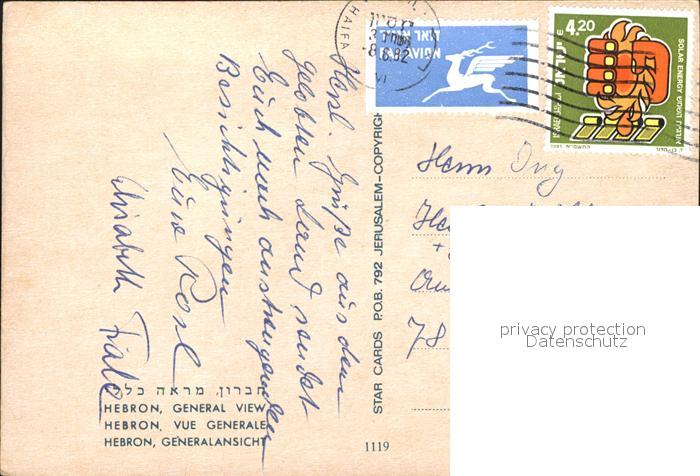 Herzl. Grüße aus dem
gelobten Land sendet
Euch nach anstrengenden
Besichtigungen
Eure Rosl
Elisabeth
חברון, מראה כללי
HEBRON, GENERAL VIEW
HEBRON, VUE GENERALE
HEBRON, GENERALANSICHT
1119
STAR CARDS P.O.B. 792 JERUSALEM-COPYRIGHT
HAIFA
-8.6.82
VI
דואר אויר
4.20
ישראל
ISRAEL
SOLAR ENERGY
1981
Herrn Ing
78
privacy protection
Datenschutz